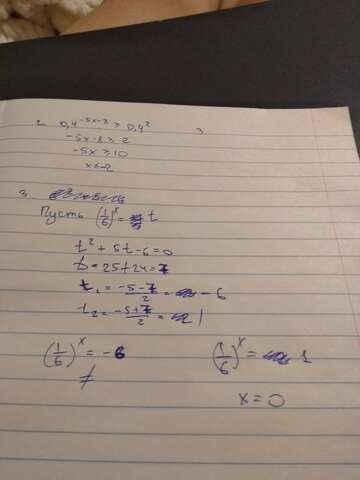 2. 0,4^-5x-8 ≥ 0,4^2
3.
-5x-8 ≥ 2
-5x ≥ 10
x ≤ -2
3.
Пусть (1/6)^x = t
t^2 + 5t - 6 = 0
D = 25+24 = 7
t1 = -5-7/2 = -6
t2 = -5+7/2 = 1
(1/6)^x = -6
(1/6)^x = 1
≠
x = 0